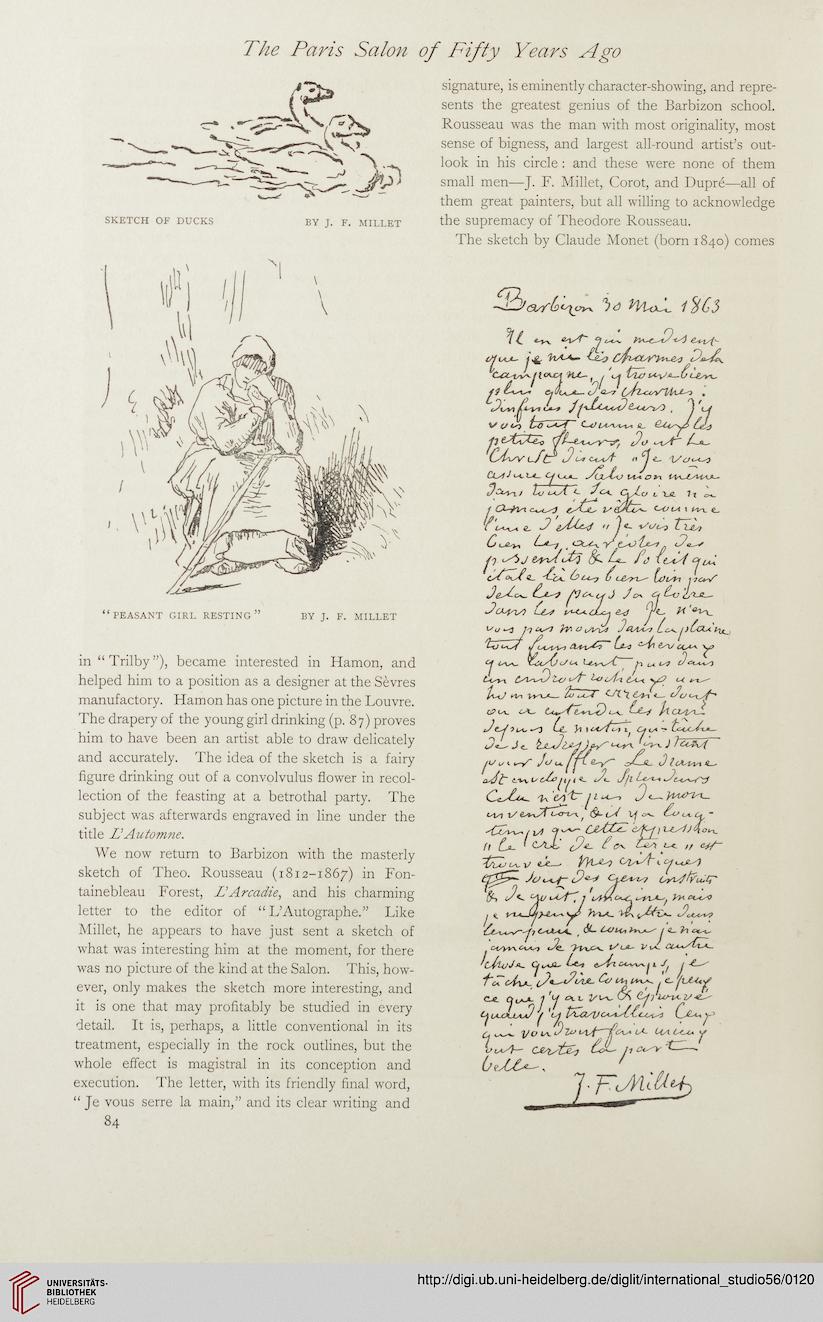 The Paris Salon of Fifty Years Ago
SKETCH OF DUCKS BY J. F. MILLET
"PEASANT GIRL RESTING" BY J. F. MILLET
in "Trilby"), became interested in Hamon, and
helped him to a position as a designer at the Sèvres
manufactory. Hamon has one picture in the Louvre.
The drapery of the young girl drinking (p. 87) proves
him to have been an artist able to draw delicately
and accurately. The idea of the sketch is a fairy
figure drinking out of a convolvulus flower in recol-
lection of the feasting at a betrothal party. The
subject was afterwards engraved in line under the
title L'Automne.
We now return to Barbizon with the masterly
sketch of Theo. Rousseau (1812-1867) in Fon-
tainebleau Forest, L'Arcadie, and his charming
letter to the editor of "L'Autographe." Like
Millet, he appears to have just sent a sketch of
what was interesting him at the moment, for there
was no picture of the kind at the Salon. This, how-
ever, only makes the sketch more interesting, and
it is one that may profitably be studied in every
detail. It is, perhaps, a little conventional in its
treatment, especially in the rock outlines, but the
whole effect is magistral in its conception and
execution. The letter, with its friendly final word,
"Je vous serre la main," and its clear writing and
84
signature, is eminently character-showing, and repre-
sents the greatest genius of the Barbizon school.
Rousseau was the man with most originality, most
sense of bigness, and largest all-round artist's out-
look in his circle: and these were none of them
small men—J. F. Millet, Corot, and Dupré—all of
them great painters, but all willing to acknowledge
the supremacy of Theodore Rousseau.
The sketch by Claude Monet (born 1840) comes
Barbizon 30 Mai 1863
Il en est qui me disent
que je nie les charmes de la
campagne, j'y trouve bien
plus que des charmes :
d'infinies splendeurs. J'y
vois tout comme eux les
petites fleurs, dont le
Christ disait "Je vous
assure que Salomon même
dans toute sa gloire n'a
jamais été vêtu comme
l'une d'elles" Je vois très
bien les auréoles des
pissenlits & le soleil qui
étale là bas bien loin par
delà les pays sa gloire
dans les nuages Je n'en
vois pas moins dans la plaine
tout fumants les chevaux
qui labourent, puis dans
un endroit rocheux un
homme tout errené dont
on a entendu les han!
depuis le matin, qui tâche
de se redresser un instant
pour souffler Le drame
est enveloppé de splendeurs
Cela n'est pas de mon
invention, & il y a long-
temps que cette expression
"le cri de la terre" est
trouvée Mes critiques
sont des gens instruits
& de gout, j'imagine, mais
je ne peux me mettre dans
leur peau, & comme je n'ai
jamais de ma vie vu autre
chose que les champs, je
tâche de dire comme je peux
ce que j'y ai vu & éprouvé
quand j'y travaillais Ceux
qui voudront faire mieux
ont certes la part
belle.
J. F. Millet
UNIVERSITÄTS-
BIBLIOTHEK
HEIDELBERG
http://digi.ub.uni-heidelberg.de/diglit/international_studio56/0120